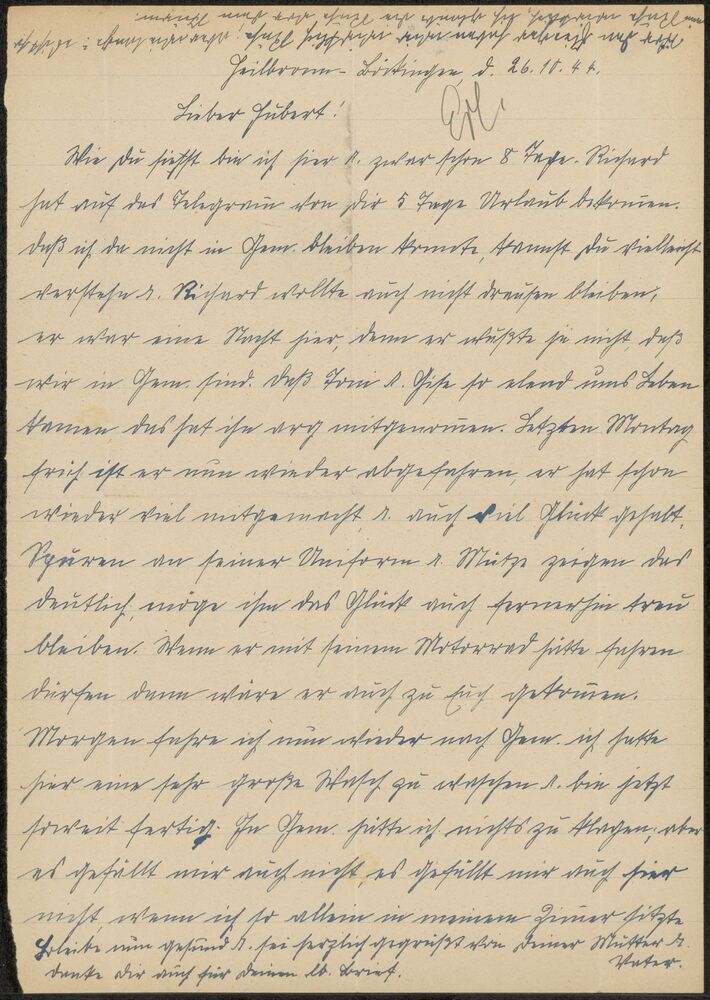 Heilbronn-Böckingen d. 26.10.44.
Lieber Hubert!
Wie Du siehst bin ich hier u. zwar schon 8 Tage. Richard
hat auf das Telegramm von Dir 5 Tage Urlaub bekommen.
Daß ich da nicht in Gem. bleiben konnte, kannst Du vielleicht
verstehn u. Richard wollte auch nicht draußen bleiben,
er war eine Nacht hier, denn er wußte ja nicht, daß
wir in Gem. sind. Daß Toni u. Gise so elend ums Leben
kamen das hat ihn arg mitgenommen. Letzten Montag
früh ist er nun wieder abgefahren, er hat schon
wieder viel mitgemacht, u. auch viel Glück gehabt.
Spuren an seiner Uniform u. Mütze zeigen das
deutlich, möge ihm das Glück auch fernerhin treu
bleiben. Wenn er mit seinem Motorrad hätte fahren
dürfen dann wäre er auch zu Euch gekommen.
Morgen fahre ich nun wieder nach Gem. ich hatte
hier eine sehr große Wasch zu waschen u. bin jetzt
soweit fertig. In Gem. hätte ich nichts zu klagen, aber
es gefällt mir auch nicht, es gefällt mir auch hier
nicht, wenn ich so allein in meinem Zimmer sitze
Bleibe nun gesund u. sei herzlich gegrüßt von Deiner Mutter u.
Vater.
danke Dir auch für Deinen lb. Brief.